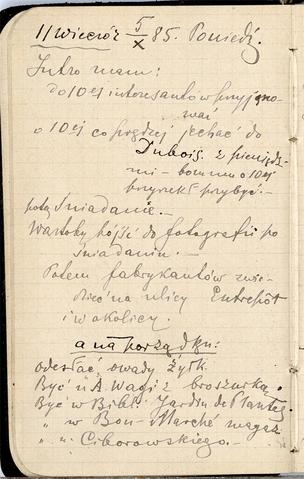 11 wieczór 5/X 85. Poniedz.
Jutro mam:
do 10ej interesantów przyjmo-
wać
o 10ej co prędzej jechać do
Dubois. z pieniędz-
mi – bo mu o 10ej
przyrzekł przybyć. –
potem śniadanie. –
Wartoby pójść do fotografii po
śniadaniu. –
Potem fabrykantów zwie-
dzić na ulicy Entrepôt
i w okolicy.
a na porządku:
odesłać owady Żyłk.
Być u A. Wagi z broszurką.
Być w Bibl. Jardin des Plantes
" w Bon-Marché magaz
" u Ciborowskiego. –